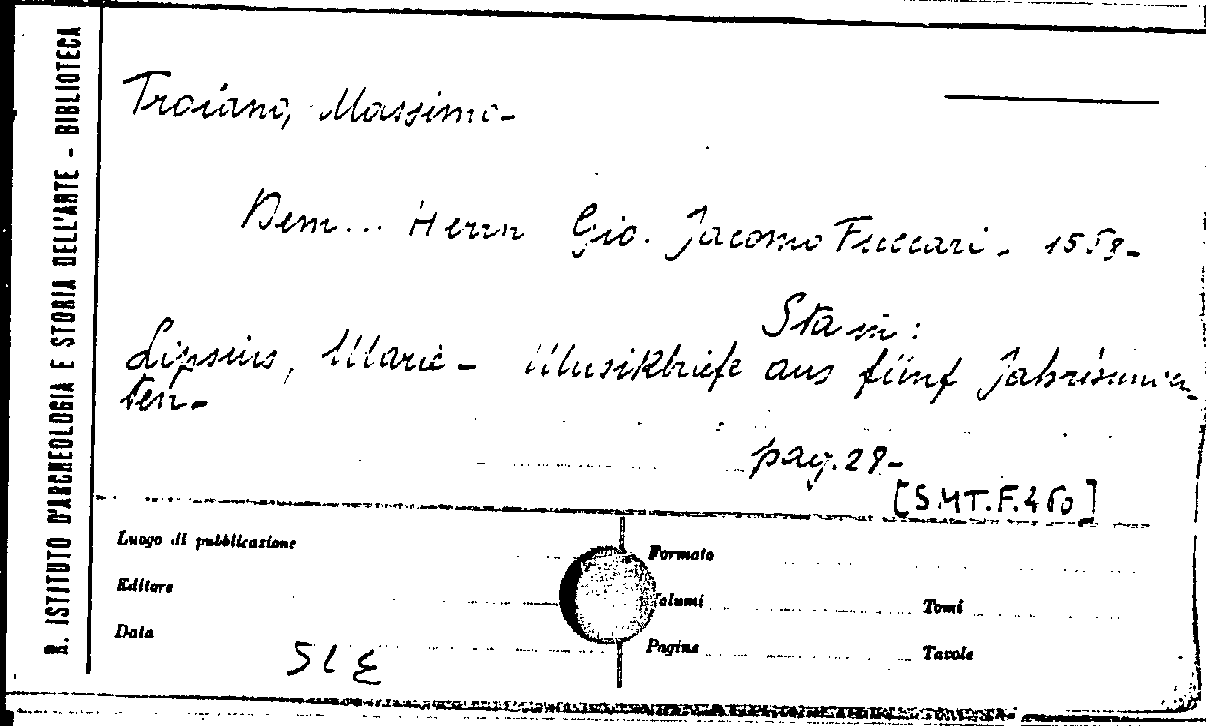 R. ISTITUTO D'ARCHEOLOGIA E STORIA DELL'ARTE - BIBLIOTECA
Troiano, Massimo-
Dem... Herrn Gio. Jacomo Fuccari - 1569-
Sta in:
Lipsius, Marie - Musikbriefe aus fünf Jahrhunder
ten-
pag. 28-
[S.MT.F.450]
Luogo di pubblicazione
Formato
Editore
Volumi
Tomi
Data
Pagine
Tavole